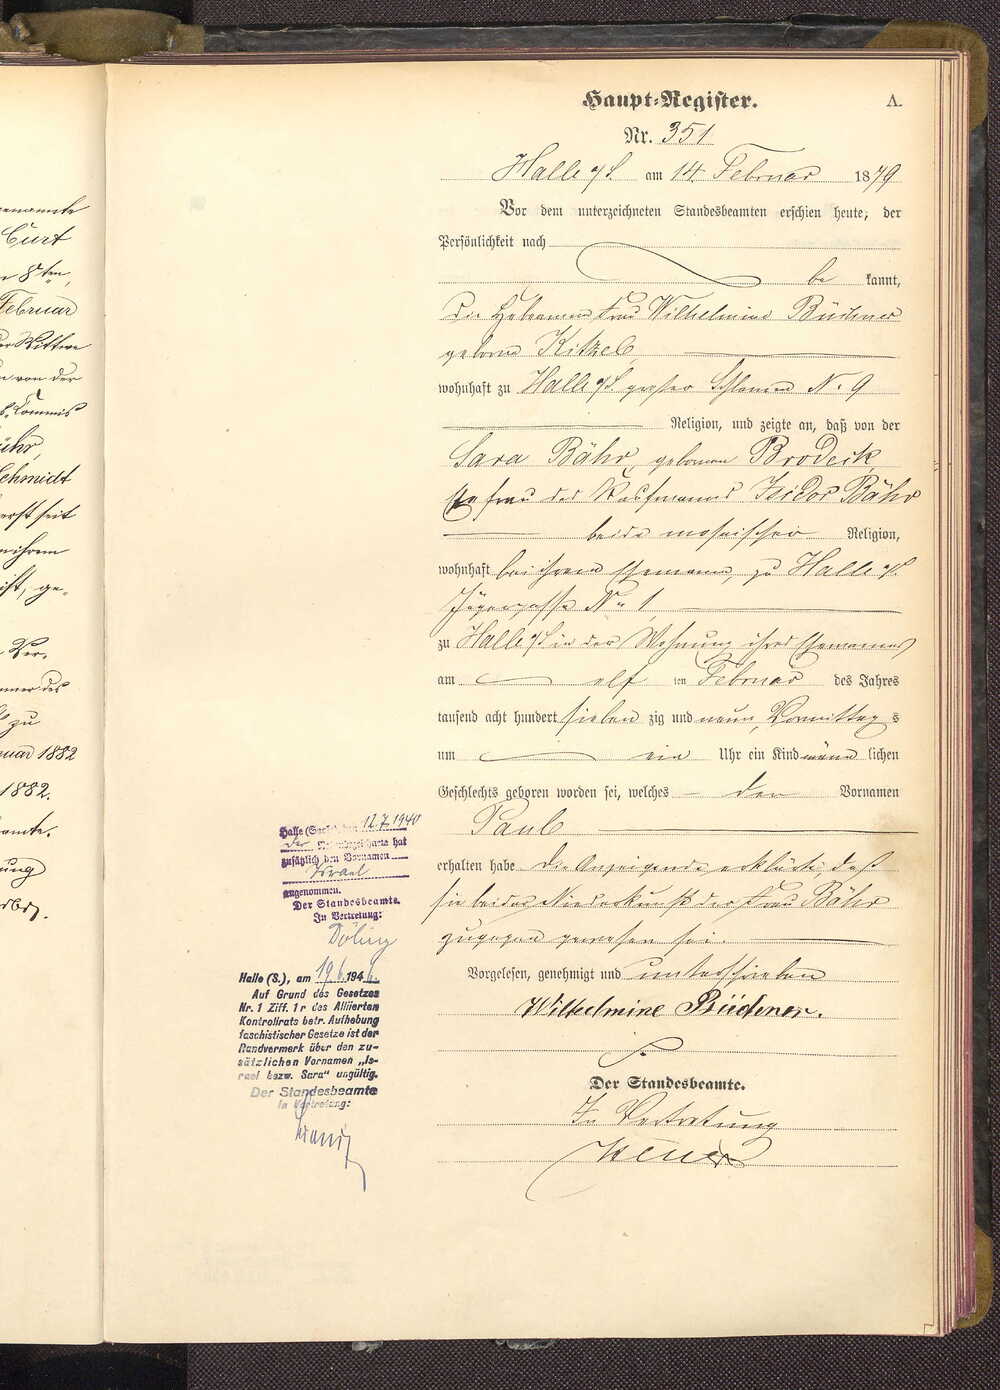 Haupt-Register.
A.
Nr. 351
Halle a/S. am 14. Februar 1879
Vor dem unterzeichneten Standesbeamten erschien heute, der
Persönlichkeit nach
be kannt,
die Hebamme Frau Wilhelmine Büchner
geborne Kitzel,
wohnhaft zu Halle a/S. großer Schlamm No 9
Religion, und zeigte an, daß von der
Sara Bähr, geborenen Brodeck,
Ehefrau des Kaufmanns Isidor Bähr
beide mosaischer Religion,
wohnhaft bei ihrem Ehemanne, zu Halle a/S.
Jägergasse No 1,
zu Halle a/S in der Wohnung ihres Ehemannes
am elf ten Februar des Jahres
tausend acht hundert sieben zig und neun, Vormittag s
um ein Uhr ein Kind männ lichen
Geschlechts geboren worden sei, welches den Vornamen
Paul
erhalten habe. Die Anzeigende erklärte, daß
sie bei der Niederkunft der Frau Bähr
zugegen gewesen sei.
Vorgelesen, genehmigt und unterschrieben
Wilhelmine Büchner.
Der Standesbeamte.
In Vertretung
Halle (Saale), den 12.7.1940
Der hat
zusätzlich den Vornamen
Israel
angenommen.
Der Standesbeamte.
In Vertretung:
Halle (S.), am 19.6.1946.
Auf Grund des Gesetzes
Nr. 1 Ziff. 1 r des Alliierten
Kontrollrats betr. Aufhebung
faschistischer Gesetze ist der
Randvermerk über den zu-
sätzlichen Vornamen „Is-
rael bezw. Sara" ungültig.
Der Standesbeamte
In Vertretung:
Curt
8ten,
Februar
der Wittwe
von der
Commis
Schmidt
erst seit
ihrem
ist, ge-
Ver-
zu
1882
1882.